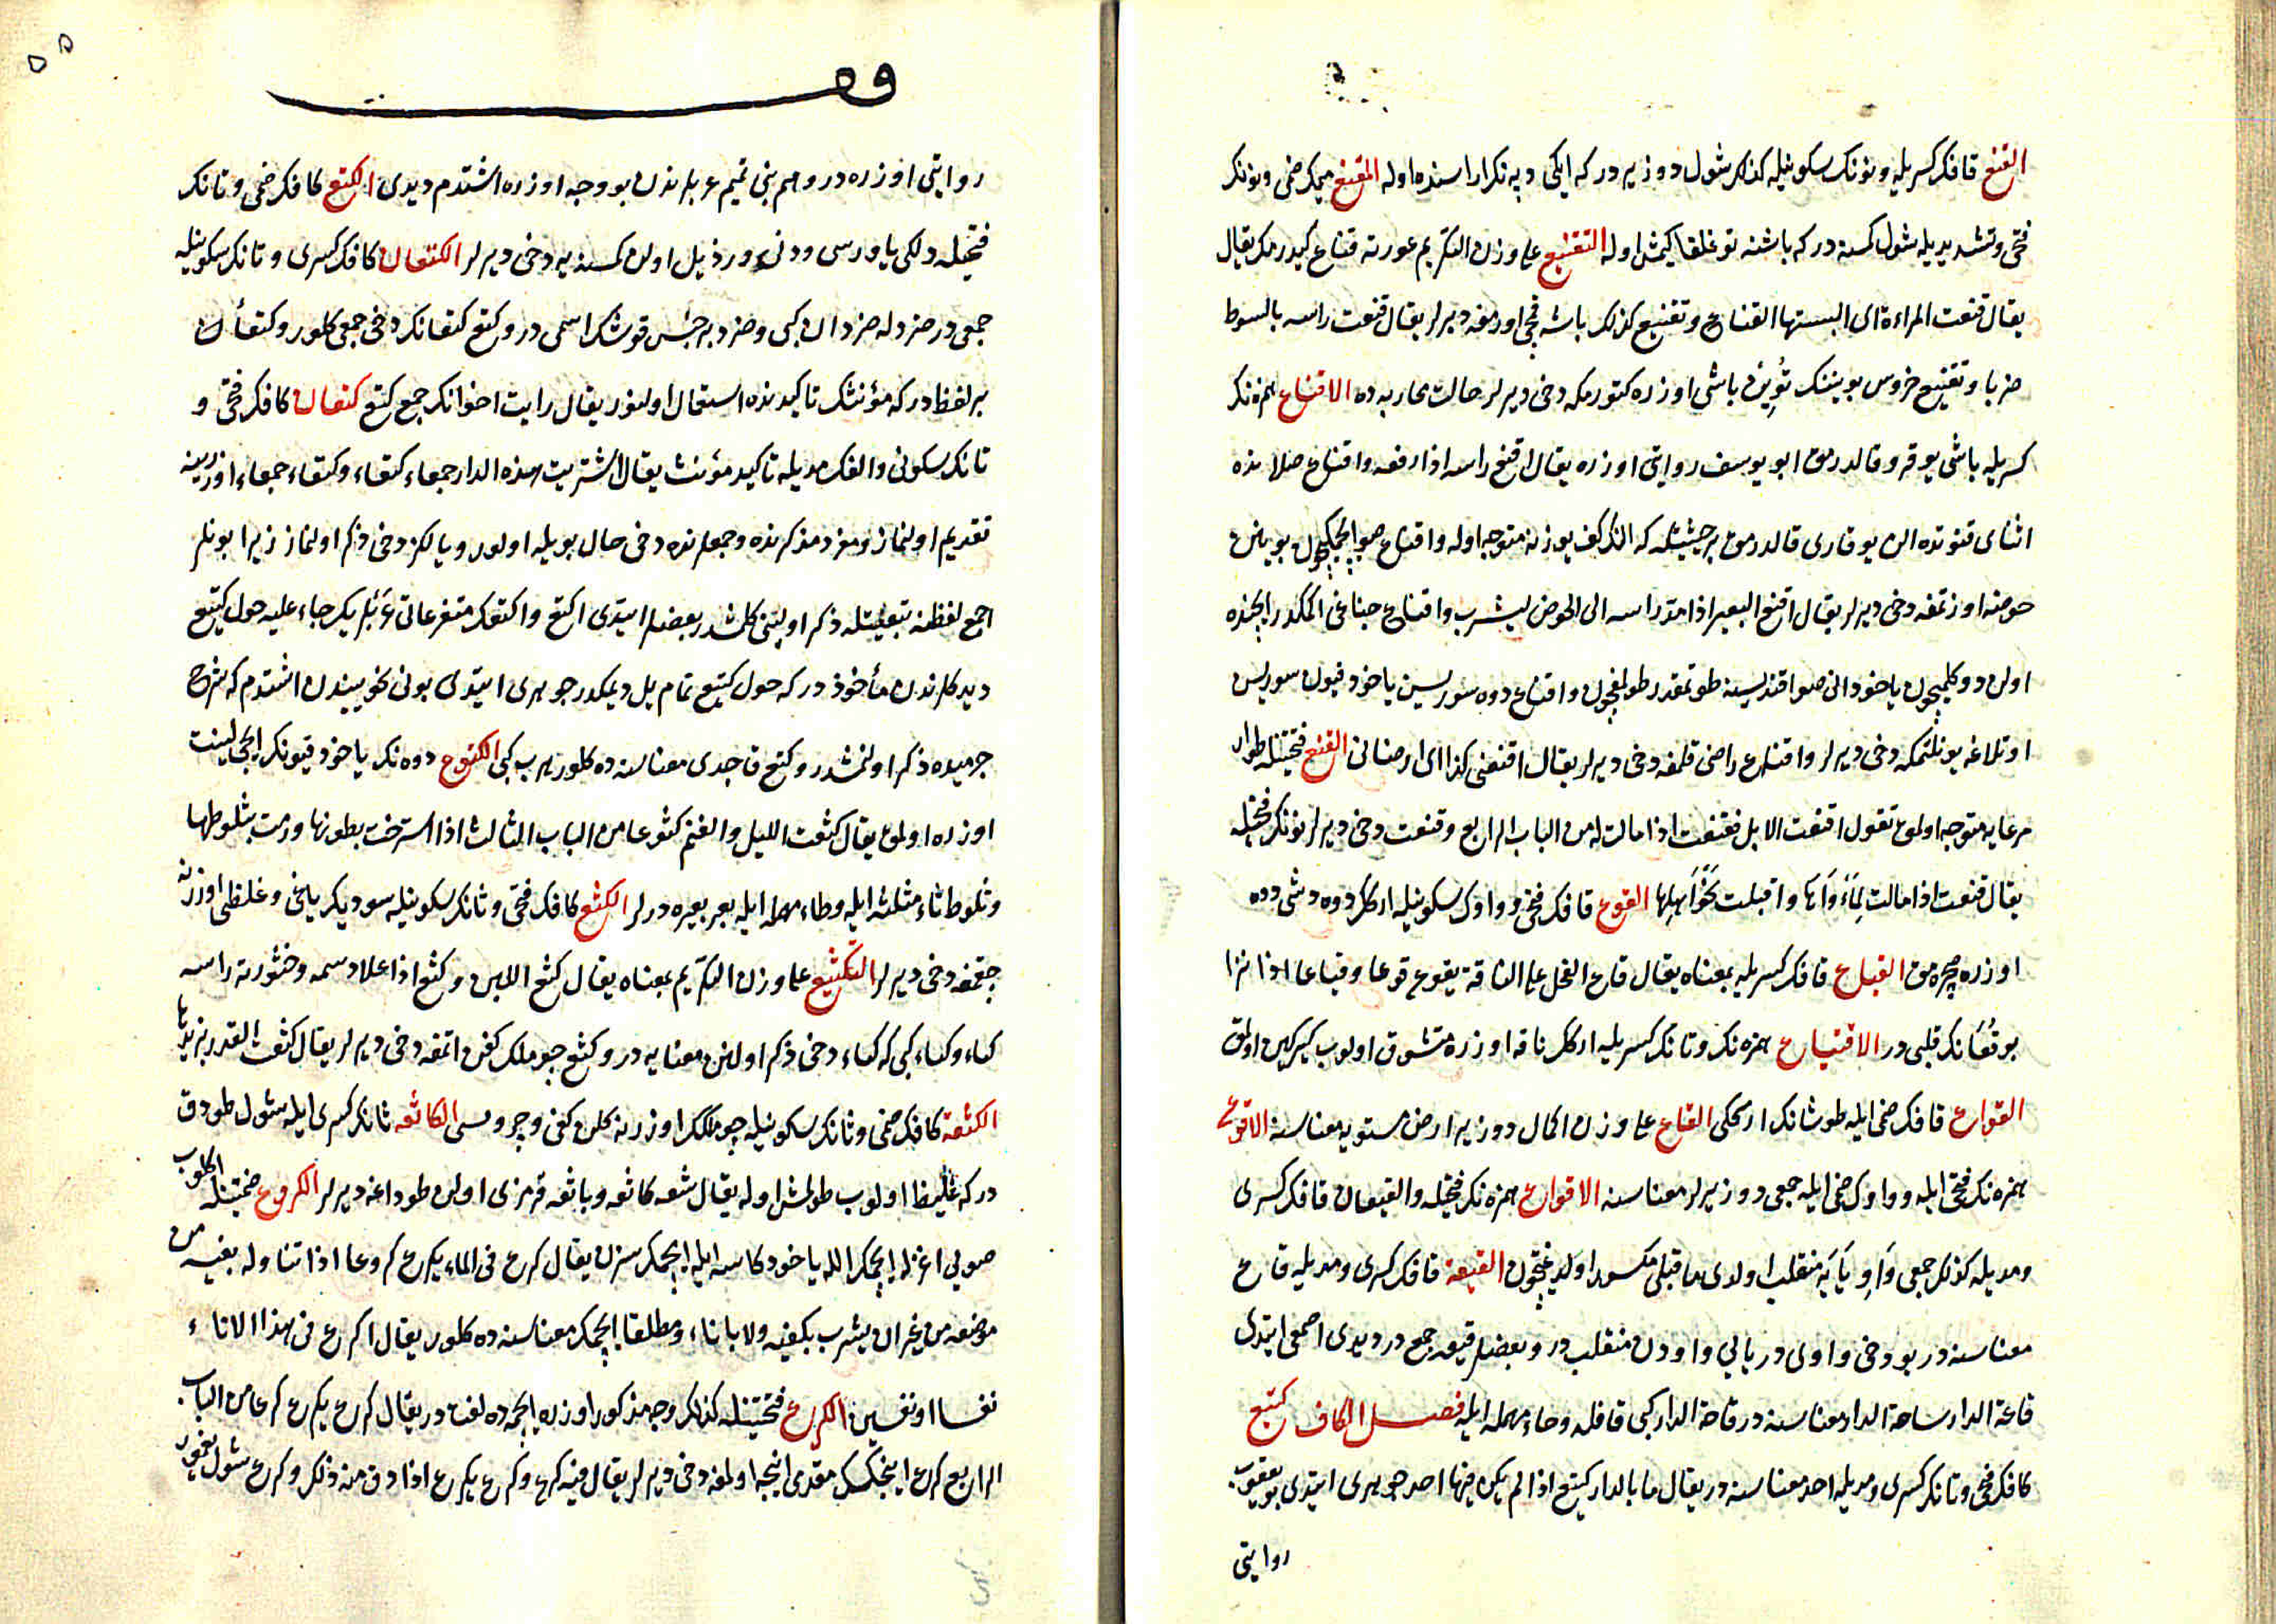 القنع قافك كسريله ونونك سكونيله كذلك شول دوز يردر كه ايكى دپه نك اراسنده اوله المقنع ميمك ضمى ونونك
فتحى وتشديديله شول كمسنه در كه باشنه توغلغا كيمش اوله التقنيع على وزن التكريم عورته قناع كيدرمك يقال
يقال قنعت المراءة اى البستها القناع وتقنيع كذلك باشه قمچى اورمغه ديرلر يقال قنعت راسه بالسوط
ضربا وتقنيع خروس بويننك تويين باشى اوزره كتورمكه دخى ديرلر حالت محاربه ده الاقناع همزه نك
كسريله باشى يوقرو قالدرمق ابو يوسف روايتى اوزره يقال اقنع راسه اذا رفعه واقناع صلاتده
اثناى قنوتده الن يوقارى قالدرمق بر حيثيتله كه النك كف يوزنه متوجه اوله واقناع صو ايچمكيچون بوينن
حوضه اوزتمغه دخى ديرلر يقال اقنع البعير اذا مد راسه الى الحوض ليشرب واقناع چناغى اكمكدر ايچنده
اولن دوكلميچون ياخود انى صو اقنديسنه طوتمقدر طولمغيچون واقناع دوه سوريسن ياخود قيون سوريسن
اوتلاغه يونلتمكه دخى ديرلر واقناع راضى قلمغه دخى ديرلر يقال اقنعنى كذا اى ارضانى القنع فتحتينله طوار
مرعايه متوجه اولمق تقول اقنعت الابل فقنعت اذا مالت له من الباب الرابع وقنعت دخى ديرلر نونك فتحيله
يقال قنعت اذا مالت لمأواها واقبلت نحو اهلها القوع قافك فتحى وواوك سكونيله اركك دوه دشى دوه
اوزره صچرهمق القياع قافك كسريله بمعناه يقال قاع الفحل على الناقة يقوع قوعا وقياعا اذا نزا
بو قعانك قلبى در الاقتياع همزه نك وتانك كسريله اركك ناقه اوزره متشوق اولوب كيركين اولمق
القواع قافك ضمى ايله طوشانك ارككى القاع على وزن المال دوز ير ارض مستويه معناسنه الاقوع
همزه نك فتحى ايله وواوك ضمى ايله جمعى دوز يرلر معناسنه الاقواع همزه نك فتحيله والقيعان قافك كسرى
ومديله كذلك جمعى واو يايه منقلب اولدى ما قبلى مكسور اولديغيچون القيعة قافك كسرى ومديله قاع
معناسنه در بو دخى واوى در يالى واودن منقلب در وبعضلر قيعه جمع در ديدى اصمعى ايتدى
قاعة الدار ساحة الدار معناسنه در قاحة الدار كبى قافله وحاء مهمله ايله فصل الكاف كتيع
كافك فتحى وتانك كسرى ومديله احد معناسنه در يقال ما بالدار كتيع اذا لم يكن فيها احد جوهرى ايتدى يعقوب
روايتى
روايتى اوزره در وهم بنى تميم عربلرندن بو وجه اوزره اشتدم ديدى الكتع كافك ضمى وتانك
فتحيله دلكى ياوروسى ودنى ورذيل اولن كمسنه يه دخى ديرلر الكتعان كافك كسرى وتانك سكونيله
جمعى در صرد له صردان كبى وصرد بر جنس قوشك اسمى در وكتع كتعانك دخى جمعى كلور وكتعان
بر لفظدر كه مؤنثك تاكيدنده استعمال اولنور يقال رايت اخوانك جمع كتع كتعان كافك فتحى و
تانك سكونى والفك مديله تاكيد مؤنث يقال اشتريت هذه الدار جمعاء كتعاء وكتعاء جمعاء اوزرينه
تقديم اولنماز ومفرد مذكرنده وجمعلرنده دخى حال بويله اولور ويالكز دخى ذكر اولنماز زيرا بونلر
اجمع لفظنه تبعيتله ذكر اولنه كلمشدر بعضلر ايتدى اكتع واكتعك متفرعاتى عربلريك جاء عليه حول كتيع
ديدكلرندن مأخوذ در كه حول كتيع تمام يل ديمكدر جوهرى ايتدى بونى نحوييندن اشتدم كه شرح
جرميده ذكر اولنمشدر وكتع قاچدى معناسنه ده كلور هرب كبى الكثوع دوه نك ياخود قيونك ايچى لينت
اوزره اولمق يقال كثعت الليل والغنم كثوعا من الباب الثالث اذا استرخت بطونها ورمت بثلوطها
وثلوط ثاء مثلثه ايله وطاء مهمله ايله بعر بعيره درلر الكثع كافك فتحى وثانك سكونيله سوديكر ياغى وغلظى اوزرنه
چقمغه دخى ديرلر التكثيع على وزن التكريم بمعناه يقال كثع اللبن وكثع اذا علا دسمه وخثورته راسه
كثاء وكثاء كبى كه كثاء دخى ذكر اولنن معنايه در وكثع چوملك كفن اتمغه دخى ديرلر يقال كثعت القدر بزبدها
الكثعة كافك ضمى وثانك سكونيله چوملك اوزرنه كلن كفى وچروسى الكاثعه ثانك كسرى ايله شول طوداق
در كه غليظ اولوب طولمش اوله يقال شفه كاثعه وباثعه قرمزى اولن طوداغه ديرلر الكروع ضمتينله اكلوب
صويى اغزله ايچمك الله ياخود كاسه ايله ايچمكسزن يقال كرع فى الماء يكرع كروعا اذا تناوله بفيه من
موضعه من غير ان يشرب بكفيه ولا باناء ومطلقا ايچمك معناسنه ده كلور يقال اكرع فى هذا الاناء
نفسا او نفسين الكرع فتحتينله كذلك وجه مذكور اوزره ايچمه ده لغت در يقال كرع يكرع كرعا من الباب
الرابع كرع اينجكك مقدمى اينجه اولمغه دخى ديرلر يقال فيه كرع وكرع يكرع اذا دق منه ذلك وكرع شول يغمور